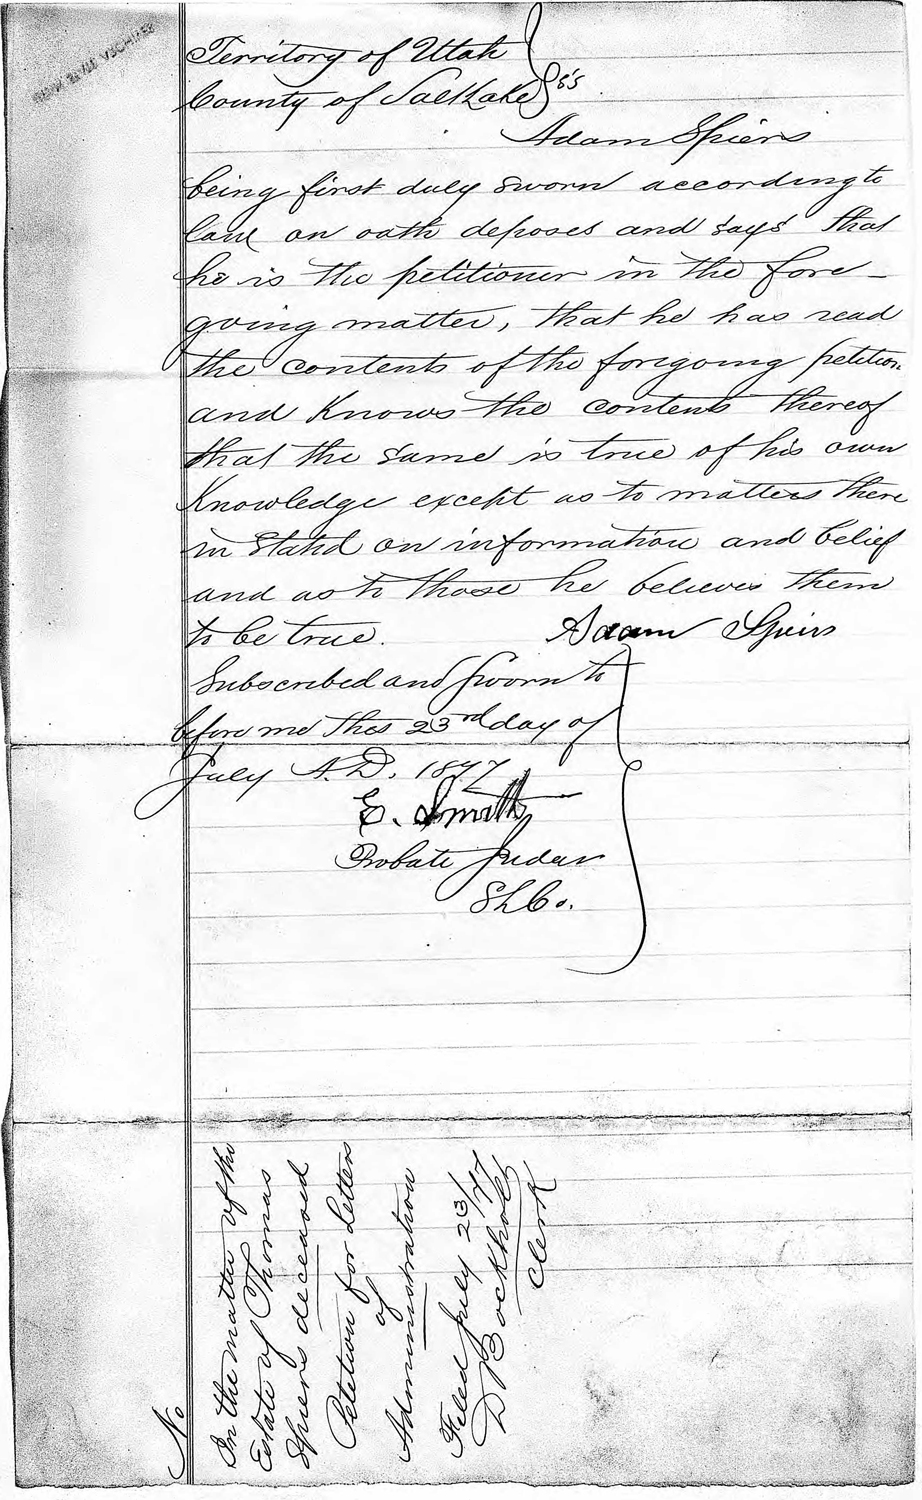 Territory of Utah
County of Salt Lake } ss
Adam Spiers
being first duly sworn according to
law on oath deposes and says that
he is the petitioner in the fore-
going matter, that he has read
the contents of the foregoing petition
and Knows the contents thereof
that the same is true of his own
Knowledge except as to matters there
in Stated on information and belief
and as to those he believes them
to be true. Adam Spiers
Subscribed and Sworn to
before me this 23rd day of
July A.D. 1877
E. Smith
Probate Judge
S L Co.
No
In the matter of the
Estate of Thomas
Spiers deceased
Petition for Letters
of
Administration
Filed July 23/77
D Bockholt
Clerk